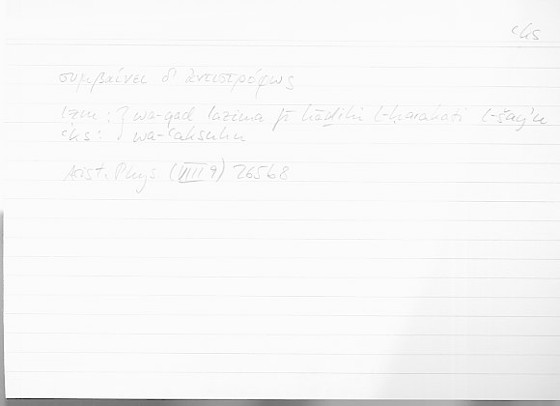 ʿks
συμβαίνει δ' ἀντιστρόφως
lzm : } wa-qad lazima fī hāḏihi l-ḥarakati l-šayʾu
ʿks : } wa-ʿaksuhu
Arist. Phys (VIII 9) 265b8